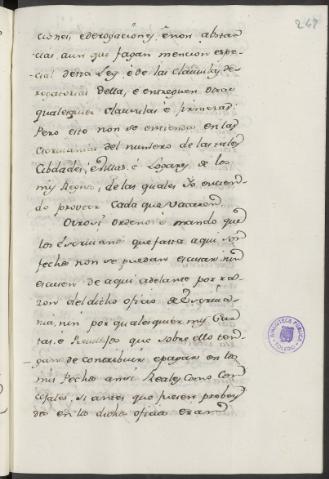 248
ciones, ederogaciones, e non abstan
cias, aun que fagan mencion espe
cial desta Ley, e de las clausulas de
rogatorias della, e entreguen otras
qualesquier clausulas e firmezas
Pero esto non se entienda en las
Escrivanias del numero de las mis
Cibdades, e Villas, e Logares de los
mis Regnos, de las quales Yo entien
do proveer cada que vacaren.
Otrosi ordeno e mando que
los Escrivanos que fasta aqui son
fechos non se puedan escusar nin
escusen de aqui adelante por ra
zon del dicho oficio de Escrivania
nia, nin por qualesquier mis Car
tas, e que sobre ello ten
gan de contribuir, e pagar en los
mis Pechos ansi Reales como Con
cejales, si antes que fuesen provey
dos en los dichos oficios eran
BIBLIOTECA PUBLICA
TOLEDO